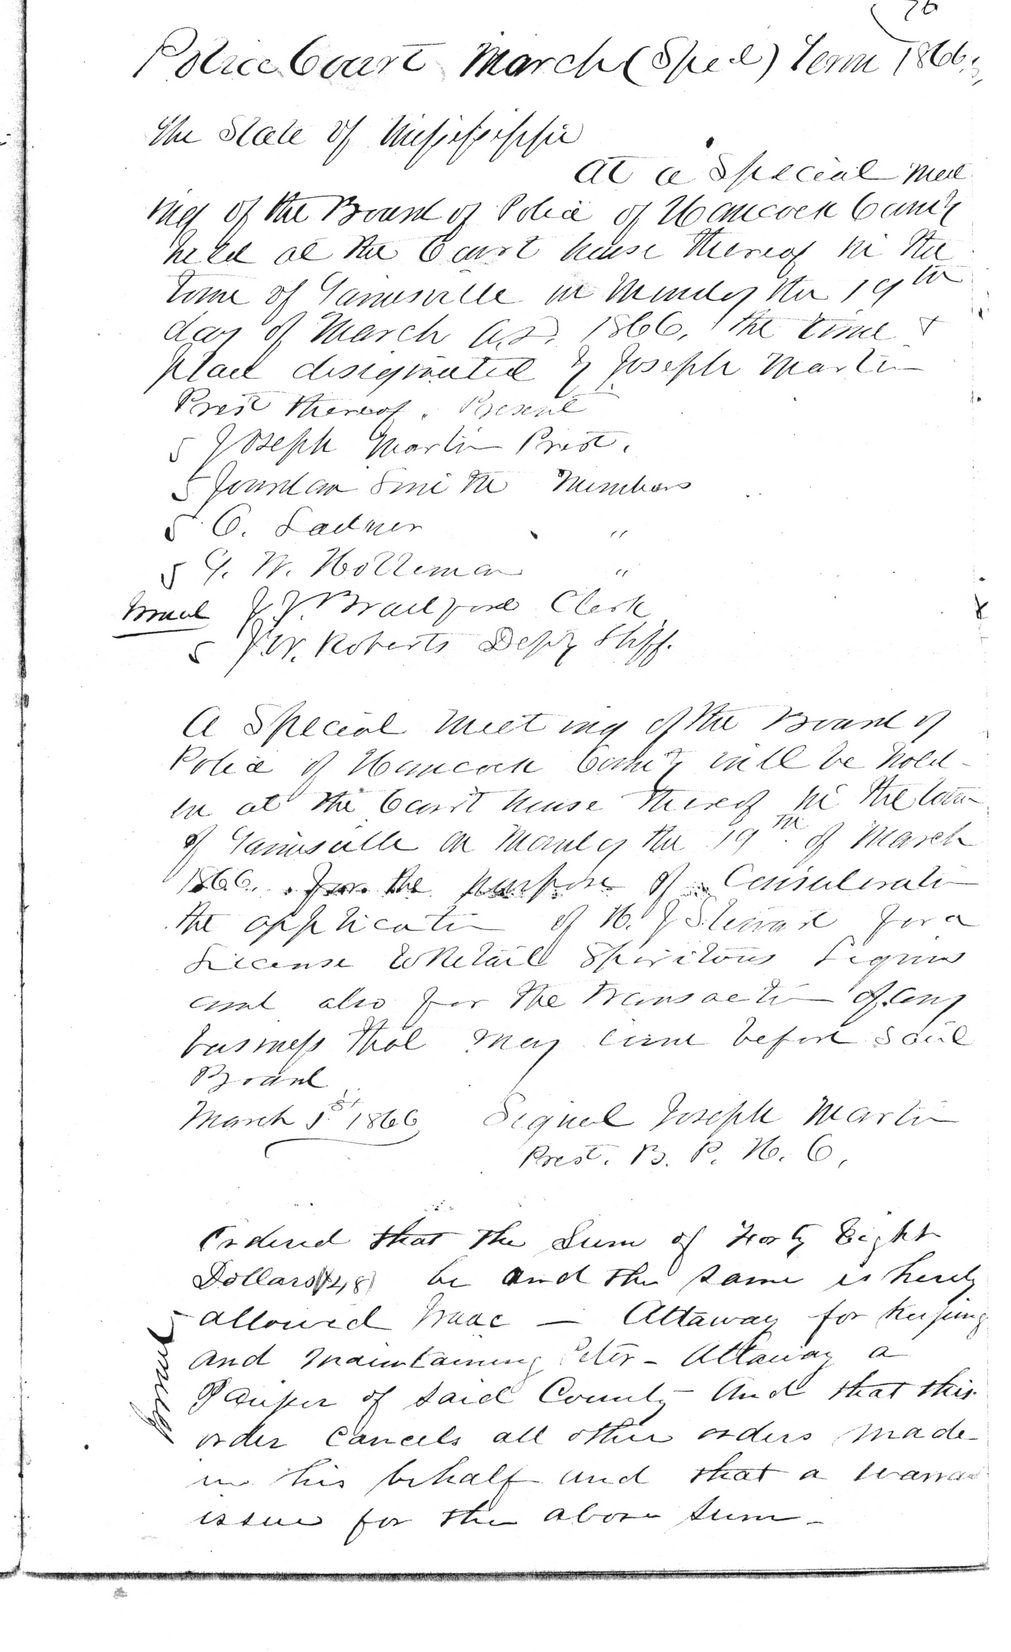 76
Police Court March (Specl) Term 1866.
The State of Mississippi
At a Special meet
ing of the Board of Police of Hancock County
held at the Court house thereof in the
town of Gainesville on Monday the 19th
day of March A.D. 1866, the time &
place designated by Joseph Martin
Prest thereof. Present
5 Joseph Martin Prest.
5 Jourdan Smith Members
5 C. Ladner "
5 G. W. Holleman "
Issued J. J. Bradford Clerk
5 J. W. Roberts Depty Shff.
A Special meeting of the Board of
Police of Hancock County will be hold-
en at the Court house thereof in the town
of Gainesville on Monday the 19th of March
1866. for the purpose of Consideratin
the application of H. J. Steward for a
License to Retail Spiritous Liquors
and also for the transaction of any
business that may come before said
Board
March 1st 1866 Signed Joseph Martin
Prest. B. P. H. C.
Ordered that the Sum of Forty Eight
Dollars (48) be and the same is hereby
allowed Isaac – Attaway for keeping
and maintaining Peter – Attaway a
Pauper of said County – And that this
order cancels all other orders made
in his behalf and that a warrant
issue for the above sum –
Issued